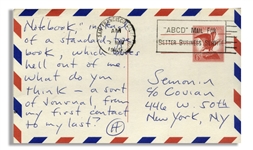 Notebook," in
of a standard
book, which
hell out of me.
what do you
think — a sort
of Journal, from
my first contact
to my last?
H
AM
"ABCD" MAIL FOR
BETTER BUSINESS
Semonin
c/o Covian
446 W. 50th
New York, NY